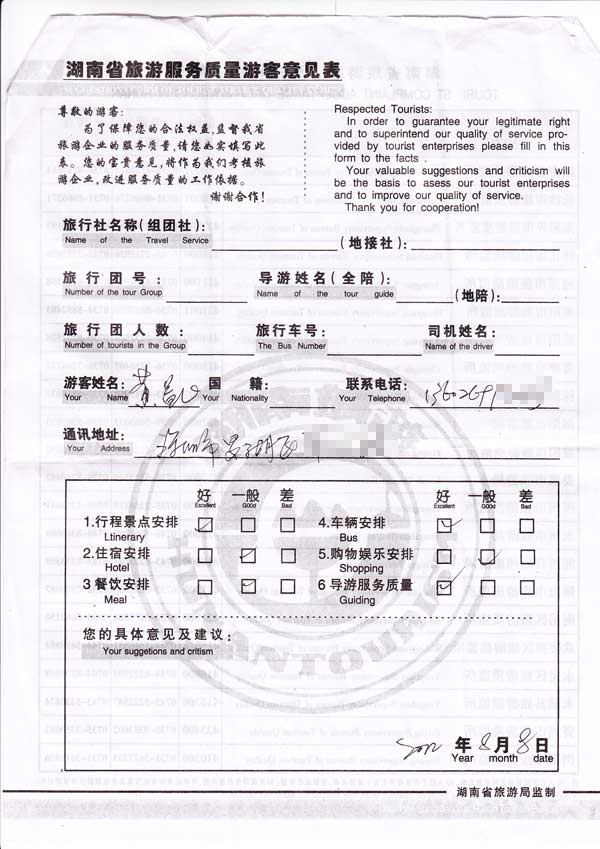 湖南省旅游服务质量游客意见表
尊敬的游客:
为了保障您的合法权益,监督我省
旅游企业的服务质量,请您如实填写此
表。您的宝贵意见,将作为我们考核旅
游企业,改进服务质量的工作依据。
谢谢合作!
Respected Tourists:
In order to guarantee your legitimate right
and to superintend our quality of service pro-
vided by tourist enterprises please fill in this
form to the facts .
Your valuable suggestions and criticism will
be the basis to asess our tourist enterprises
and to improve our quality of service.
Thank you for cooperation!
旅行社名称(组团社): (地接社):
Name of the Travel Service
旅行团号: 导游姓名(全陪) (地陪):
Number of the tour Group Name of the tour guide
旅行团人数: 旅行车号: 司机姓名:
Number of tourists in the Group The Bus Number Name of the driver
游客姓名: 国籍: 联系电话:
Your Name Your Nationality Your Telephone
通讯地址:
Your Address
好 一般 差 好 一般 差
Excellent G00d Bad Excellent G00d Bad
1.行程景点安排 4.车辆安排
Ltinerary Bus
2.住宿安排 5.购物娱乐安排
Hotel Shopping
3 餐饮安排 6 导游服务质量
Meal Guiding
您的具体意见及建议:
Your suggetions and critism
年8月8日
Year month date
湖南省旅游局监制
HUNAN TOURIST